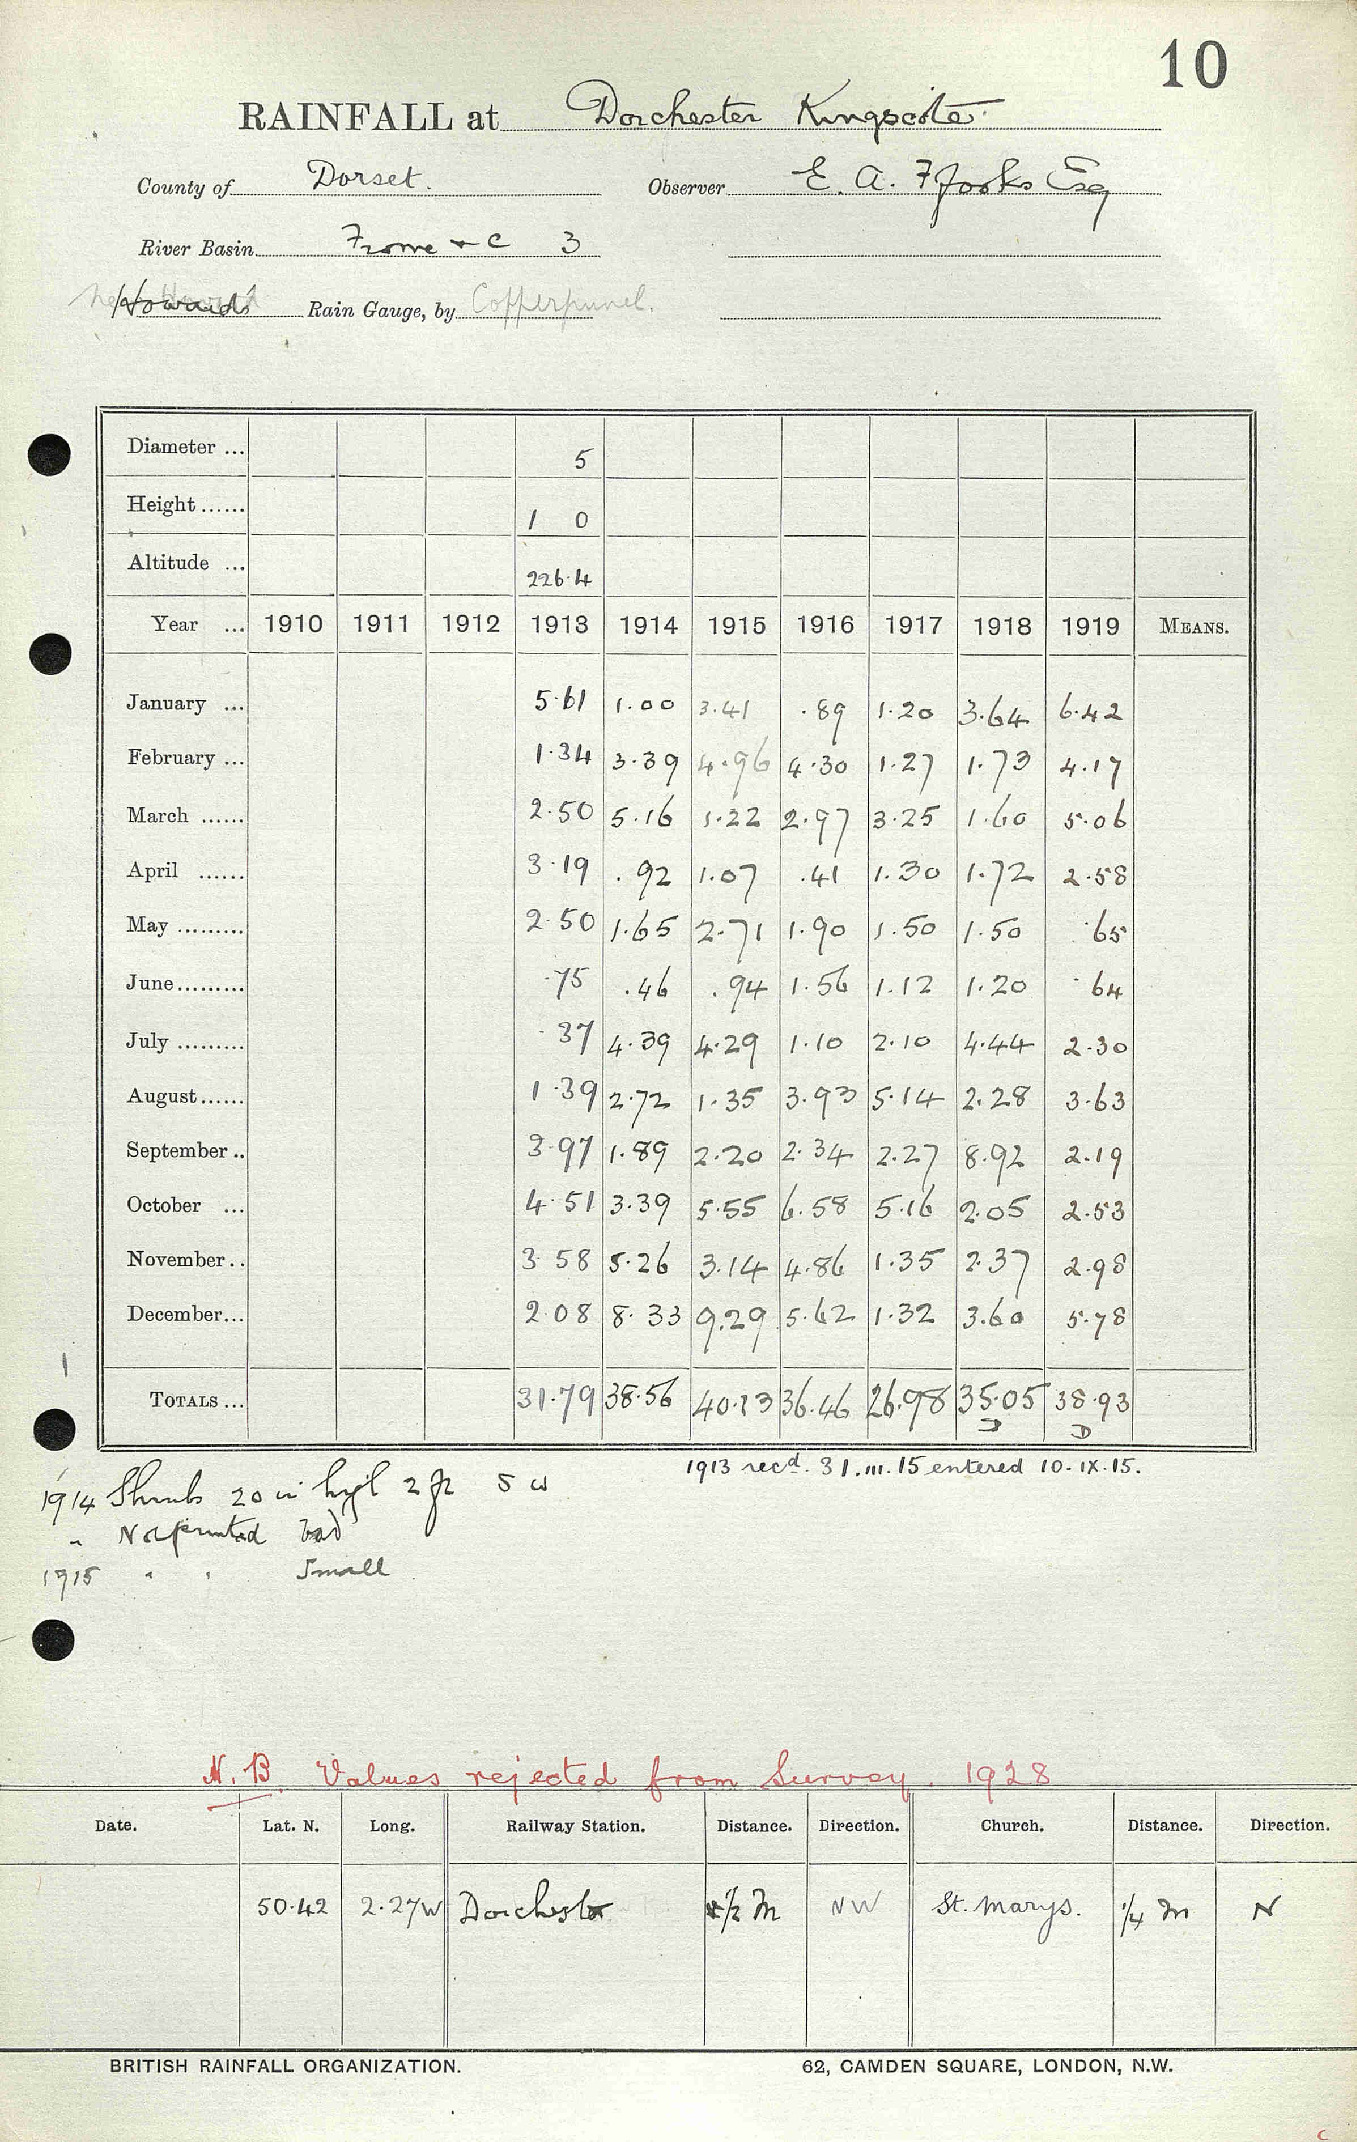 10
RAINFALL at Dorchester Kingscote
County of Dorset. Observer E. A. Ffooks Esq
River Basin Frome & c 3
Howards Rain Gauge, by
Diameter ... 5
Height ...... 1 0
Altitude ... 226.4
Year ... 1910 1911 1912 1913 1914 1915 1916 1917 1918 1919 MEANS.
January ... 5.61 1.00 3.41 .89 1.20 3.64 6.42
February ... 1.34 3.39 4.96 4.30 1.27 1.73 4.17
March ...... 2.50 5.16 1.22 2.97 3.25 1.60 5.06
April ...... 3.19 .92 1.07 .41 1.30 1.72 2.58
May ......... 2.50 1.65 2.71 1.90 1.50 1.50 .65
June ......... .75 .46 .94 1.56 1.12 1.20 .64
July ......... .37 4.39 4.29 1.10 2.10 4.44 2.30
August ...... 1.39 2.72 1.35 3.93 5.14 2.28 3.63
September .. 3.97 1.89 2.20 2.34 2.27 8.92 2.19
October ... 4.51 3.39 5.55 6.58 5.16 2.05 2.53
November .. 3.58 5.26 3.14 4.86 1.35 2.37 2.98
December ... 2.08 8.33 9.29 5.62 1.32 3.60 5.78
TOTALS ... 31.79 38.56 40.13 36.46 26.98 35.05 38.93
1913 recd. 31.III.15 entered 10.IX.15.
1914 Shrub 20 in high 2 ft SW
" Not printed bad
1915 " " Small
N.B. Values rejected from Survey. 1928
Date. Lat. N. Long. Railway Station. Distance. Direction. Church. Distance. Direction.
50.42 2.27W Dorchester 1/2 m NW St. Marys. 1/4 m N
BRITISH RAINFALL ORGANIZATION. 62, CAMDEN SQUARE, LONDON, N.W.